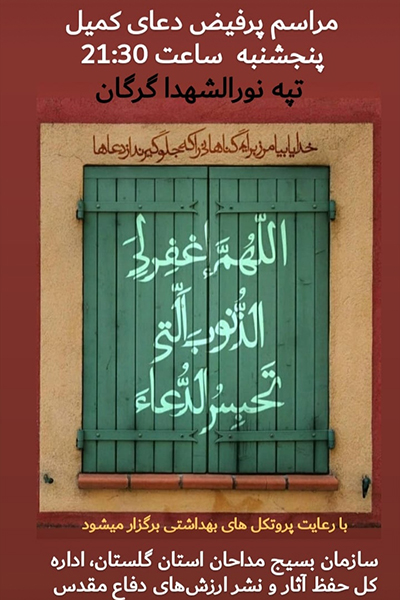 مراسم پرفیض دعای کمیل
پنجشنبه ساعت 21:30
تپه نورالشهدا گرگان
خدایا بیامرز برایم گناهانی را که جلوگیرند از دعاها
اللّهُمَّ إغفِر لِیَ
الذُّنوبَ الَّتی
تَحبِسُ الدُّعاءَ
با رعایت پروتکل های بهداشتی برگزار میشود
سازمان بسیج مداحان استان گلستان، اداره
کل حفظ آثار و نشر ارزش‌های دفاع مقدس